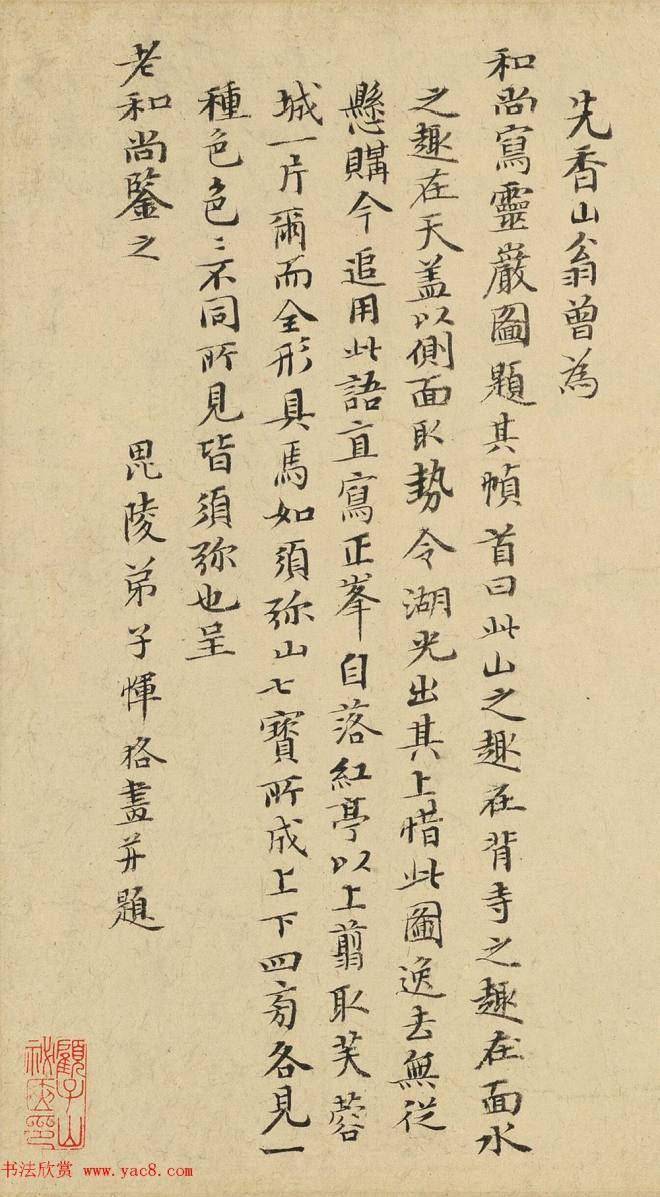 先香山翁曾為
和尚寫靈巖圖題其幀首曰此山之趣在背寺之趣在面水
之趣在天蓋以側面取勢令湖光出其上惜此圖逸去無從
懸購今追用此語直寫正峯自落紅亭以上翦取芙蓉
城一片爾而全形具焉如須弥山七寶所成上下四旁各見一
種色色〻不同所見皆須弥也呈
老和尚鑒之
毘陵弟子惲格畫并題
顧子山秘篋印
书法欣赏 www.yac8.com